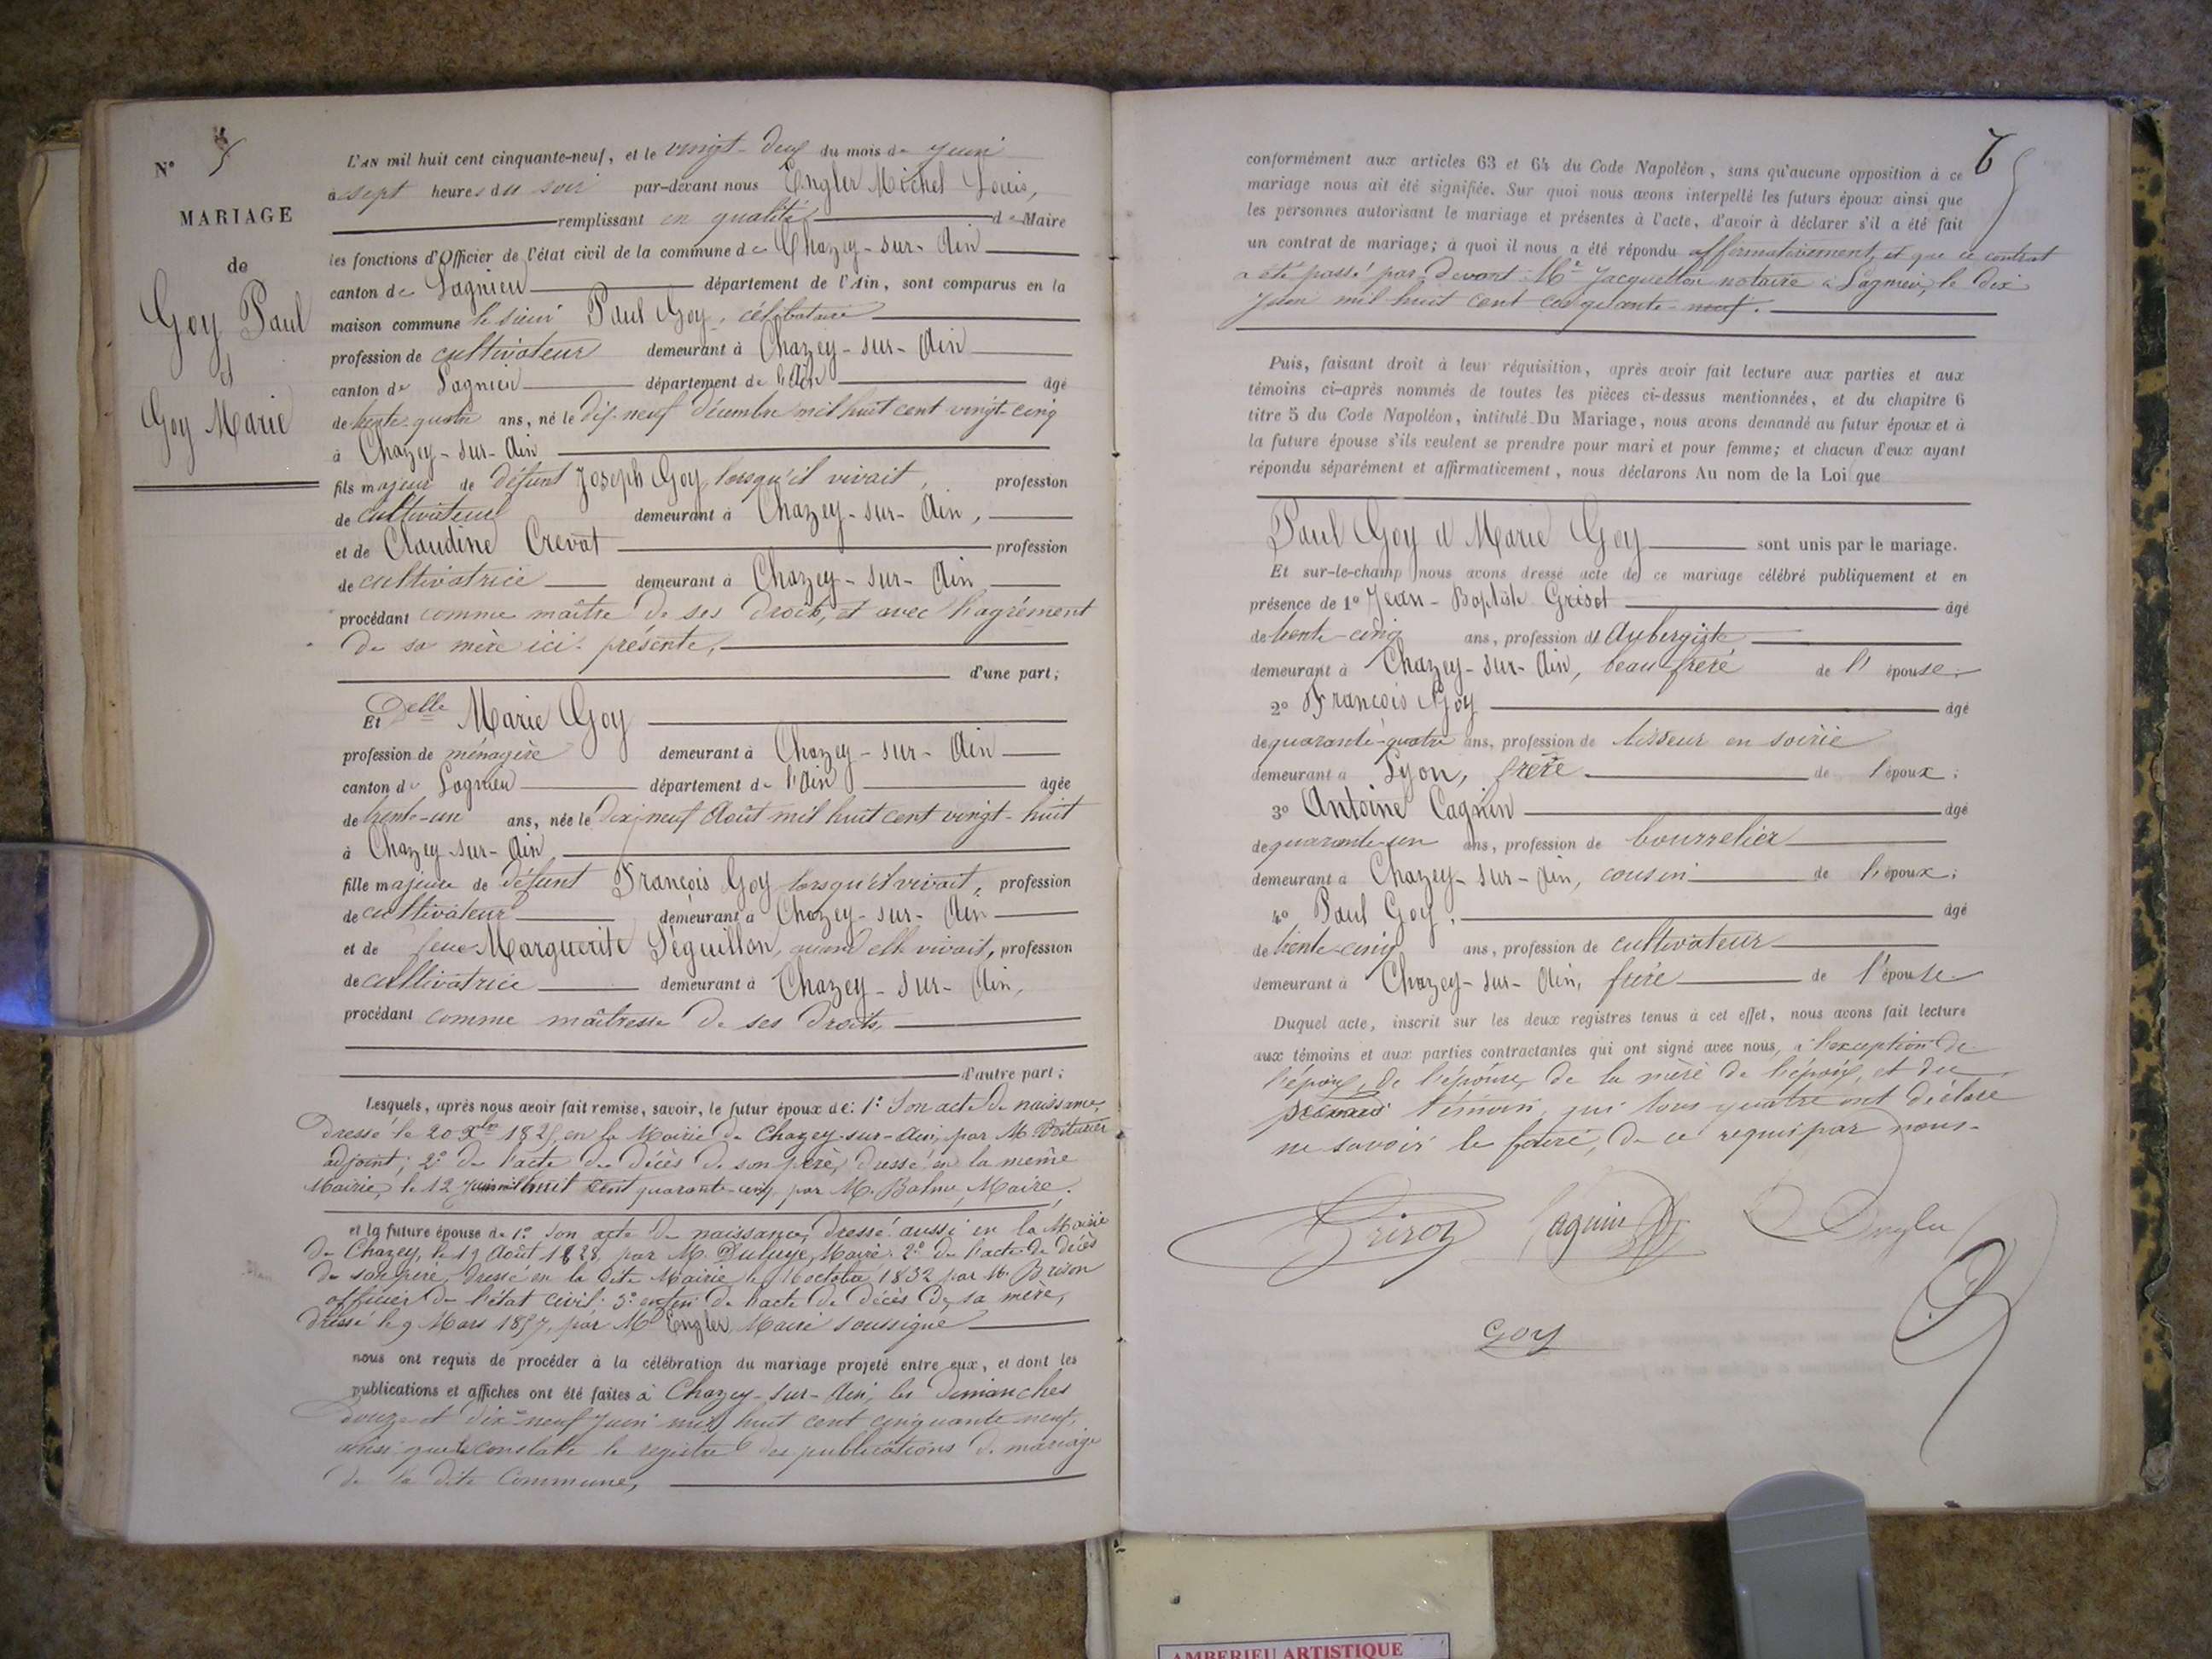 N° 5
MARIAGE
de
Goy Paul
et
Goy Marie
L'AN mil huit cent cinquante-neuf, et le vingt-deux du mois de Juin
à sept heures du soir par-devant nous Engler Michel Louis,
remplissant en qualité de Maire
les fonctions d'Officier de l'état civil de la commune de Chazey-sur-Ain
canton de Lagnieu département de l'Ain, sont comparus en la
maison commune le sieur Paul Goy, célibataire
profession de cultivateur demeurant à Chazey-sur-Ain
canton de Lagnieu département de l'Ain âgé
de trente-quatre ans, né le dix-neuf décembre mil huit cent vingt-cinq
à Chazey-sur-Ain
fils majeur de défunt Joseph Goy, lorsqu'il vivait, profession
de cultivateur demeurant à Chazey-sur-Ain,
et de Claudine Crevat profession
de cultivatrice demeurant à Chazey-sur-Ain
procédant comme maître de ses droits, et avec l'agrément
de sa mère ici présente,
d'une part;
Et Delle Marie Goy
profession de ménagère demeurant à Chazey-sur-Ain
canton de Lagnieu département de l'Ain âgée
de trente-un ans, née le dix-neuf Août mil huit cent vingt-huit
à Chazey-sur-Ain
fille majeure de défunt François Goy lorsqu'il vivait, profession
de cultivateur demeurant à Chazey-sur-Ain
et de feue Marguerite Séguillon, quand elle vivait, profession
de cultivatrice demeurant à Chazey-sur-Ain,
procédant comme maîtresse de ses droits,
d'autre part;
Lesquels, après nous avoir fait remise, savoir, le futur époux de: 1° Son acte de naissance,
dressé le 20 Xbre 1825, en la Mairie de Chazey-sur-Ain, par M.
adjoint; 2° de l'acte de décès de son père, dressé en la même
Mairie, le 12 Juin mil huit cent quarante-cinq, par M. Balme, Maire.
et la future épouse de 1° Son acte de naissance, dressé aussi en la Mairie
de Chazey, le 19 Août 1828, par M. Maire; 2° de l'acte de décès
de son père, dressé en la dite Mairie le 16 octobre 1832 par M. Brison
officier de l'état civil; 3° enfin de l'acte de décès de sa mère,
dressé le 9 Mars 1857, par Mr Engler, Maire soussigné
nous ont requis de procéder à la célébration du mariage projeté entre eux, et dont les
publications et affiches ont été faites à Chazey-sur-Ain, les dimanches
douze et dix-neuf Juin mil huit cent cinquante neuf,
ainsi que le constate le registre des publications de mariage
de la dite Commune,
conformément aux articles 63 et 64 du Code Napoléon, sans qu'aucune opposition à ce
mariage nous ait été signifiée. Sur quoi nous avons interpellé les futurs époux ainsi que
les personnes autorisant le mariage et présentes à l'acte, d'avoir à déclarer s'il a été fait
un contrat de mariage; à quoi il nous a été répondu affirmativement, et que ce contrat
a été passé par devant Me Jacquellon notaire à Lagnieu, le dix
Juin mil huit cent cinquante-neuf.
Puis, faisant droit à leur réquisition, après avoir fait lecture aux parties et aux
témoins ci-après nommés de toutes les pièces ci-dessus mentionnées, et du chapitre 6
titre 5 du Code Napoléon, intitulé Du Mariage, nous avons demandé au futur époux et à
la future épouse s'ils veulent se prendre pour mari et pour femme; et chacun d'eux ayant
répondu séparément et affirmativement, nous déclarons Au nom de la Loi que
Paul Goy et Marie Goy sont unis par le mariage.
Et sur-le-champ nous avons dressé acte de ce mariage célébré publiquement et en
présence de 1° Jean-Baptiste Grisot âgé
de trente-cinq ans, profession d'Aubergiste
demeurant à Chazey-sur-Ain, beau-frère de l'épouse;
2° François Goy âgé
de quarante-quatre ans, profession de tisseur en soirie
demeurant à Lyon, frère de l'époux;
3° Antoine Cagnin âgé
de quarante-un ans, profession de bourrelier
demeurant à Chazey-sur-Ain, cousin de l'époux;
4° Paul Goy, âgé
de trente-cinq ans, profession de cultivateur
demeurant à Chazey-sur-Ain, frère de l'épouse
Duquel acte, inscrit sur les deux registres tenus à cet effet, nous avons fait lecture
aux témoins et aux parties contractantes qui ont signé avec nous, à l'exception de
l'époux, de l'épouse, de la mère de l'époux, et du
témoin, qui tous quatre ont déclaré
ne savoir le faire, de ce requis par nous.
Cagnin
Engler
GOY
AMBERIEU ARTISTIQUE